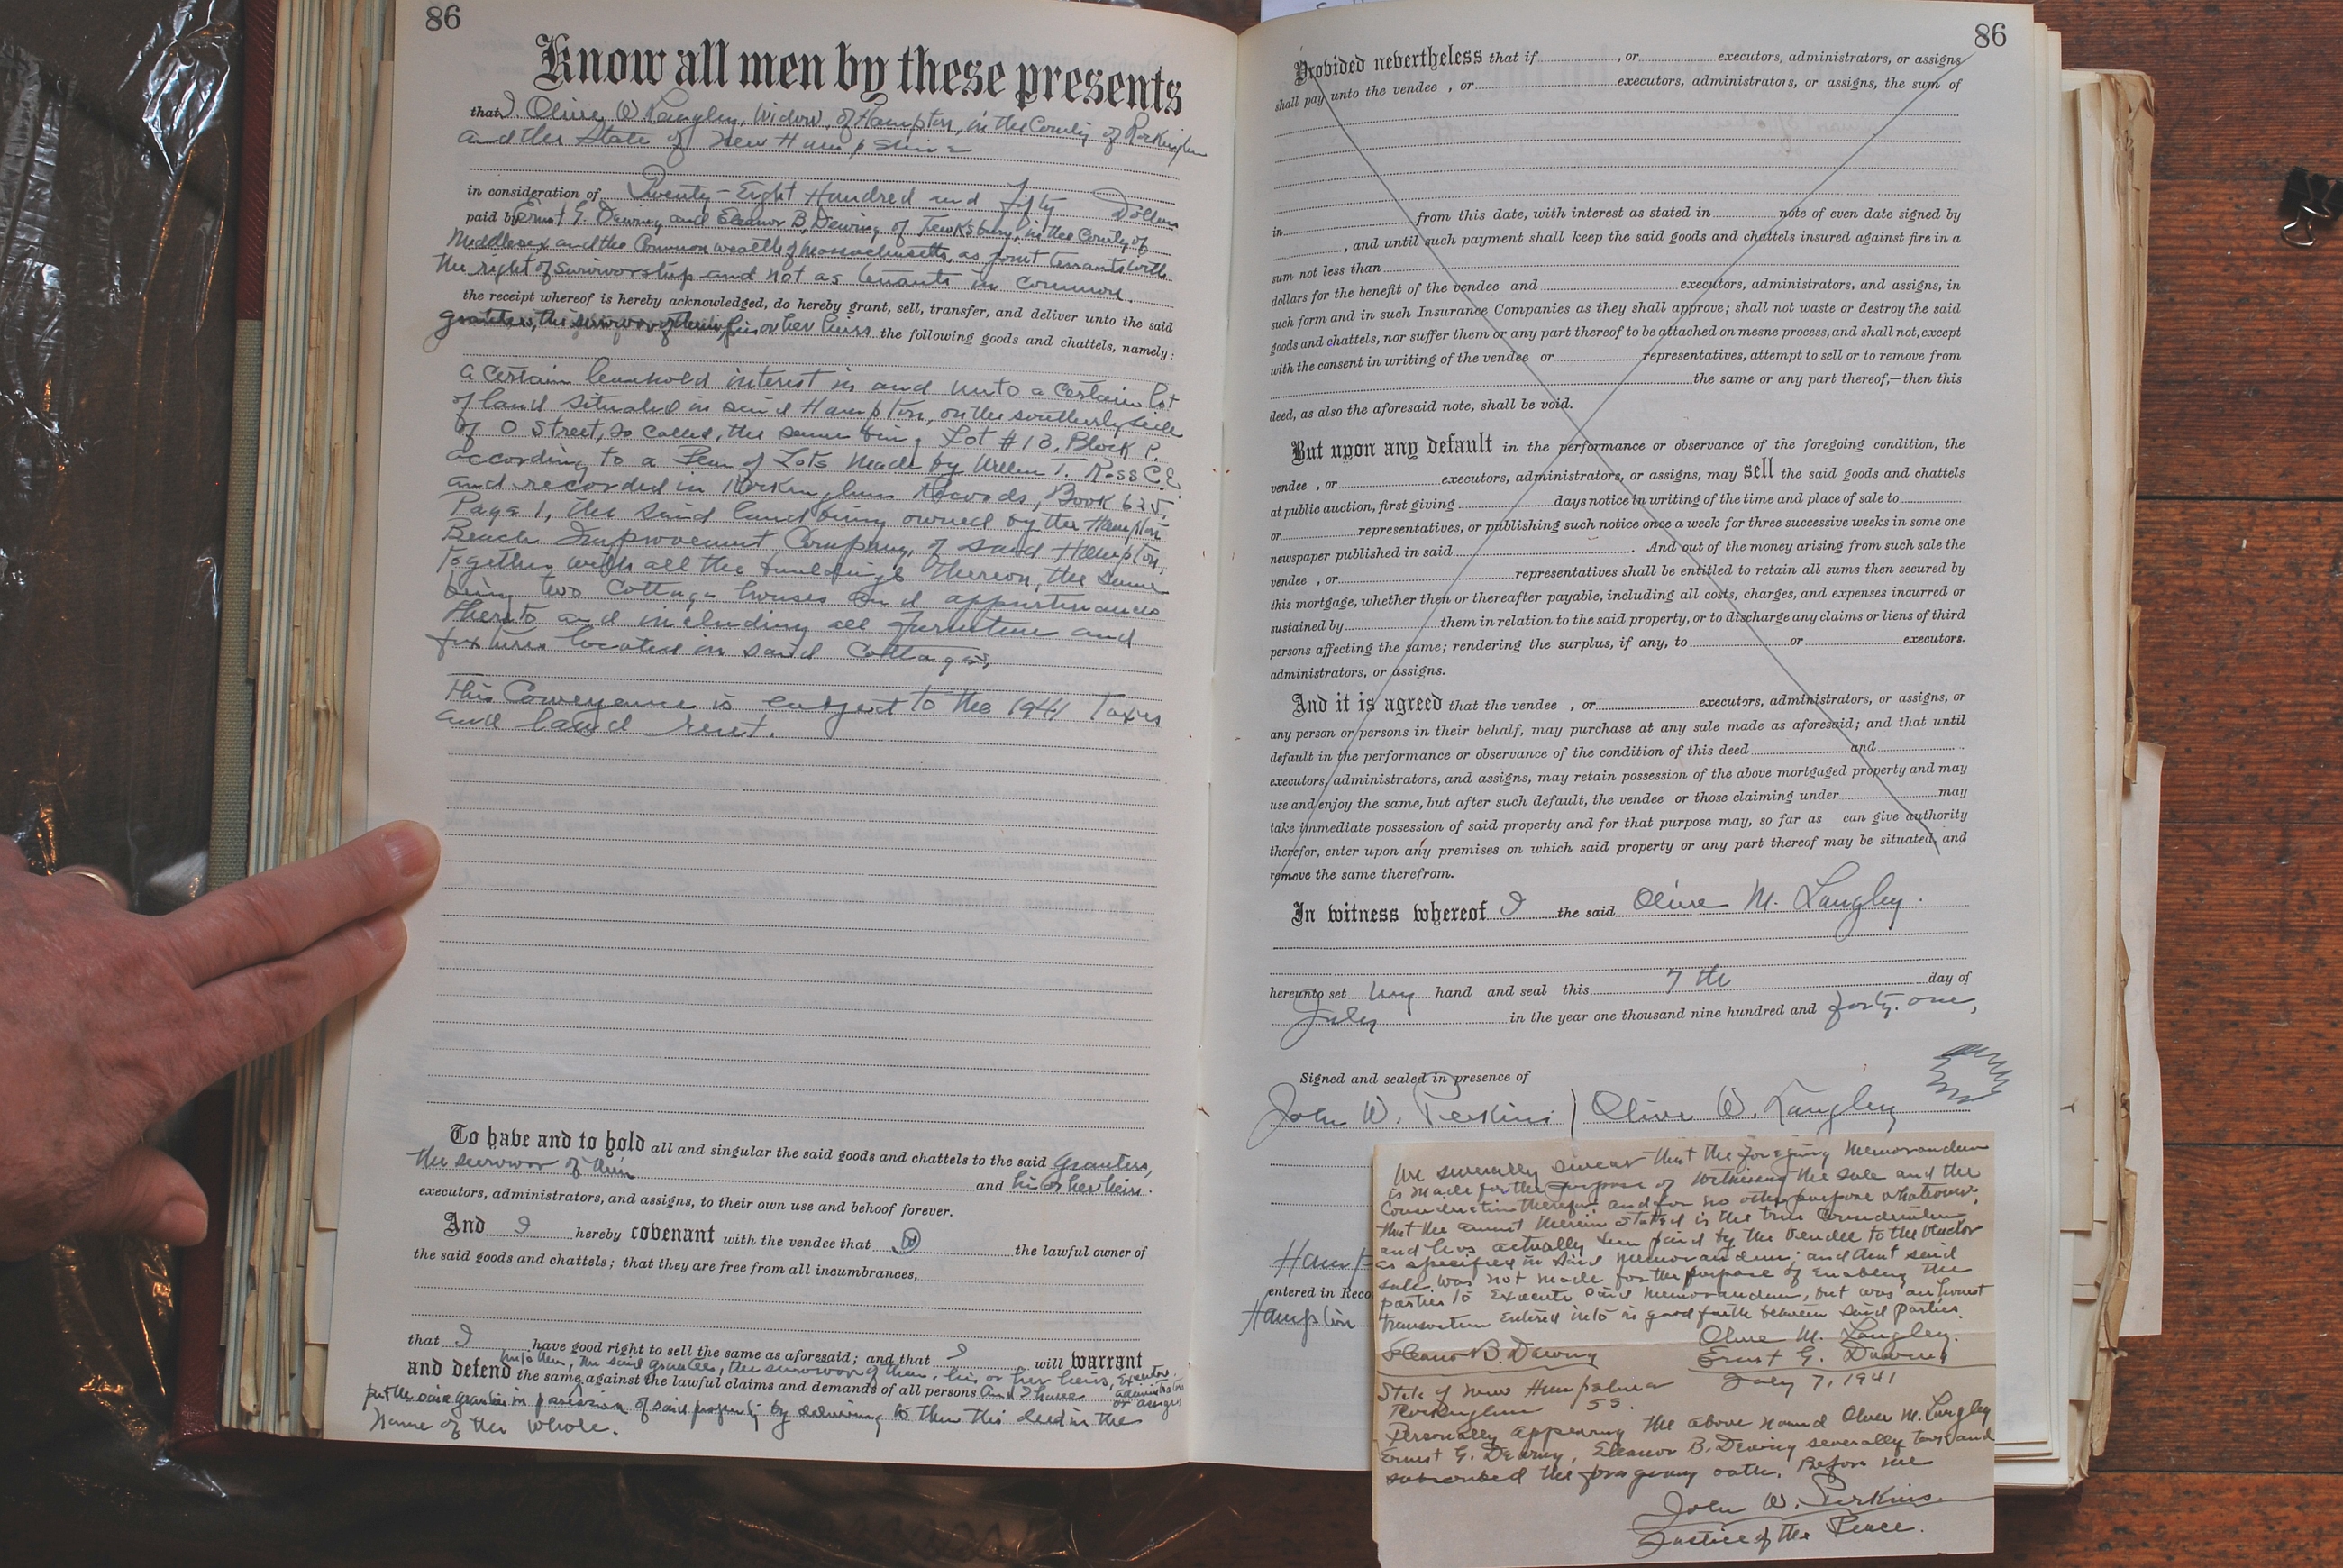 86
Know all men by these presents
that I Olive W Langley, Widow, of Hampton, in the County of Rockingham
and the State of New Hampshire
in consideration of Twenty-Eight Hundred and Fifty Dollars
paid by Ernest G. Dewing and Eleanor B. Dewing of Tewksbury, in the County of
Middlesex and the Commonwealth of Massachusetts, as joint tenants with
the right of survivorship and not as tenants in common.
the receipt whereof is hereby acknowledged, do hereby grant, sell, transfer, and deliver unto the said
grantees, the survivor of them, his or her heirs the following goods and chattels, namely:
a certain leasehold interest in and unto a certain lot
of land situated in said Hampton, on the southerly side
of O Street, so called, the same being Lot #13, Block P.
according to a Plan of Lots made by William T. Ross C.E.
and recorded in Rockingham Records, Book 625,
Page 1, the said land being owned by the Hampton
Beach Improvement Company, of said Hampton,
together with all the buildings thereon, the same
being two cottage houses and appurtenances
thereto and including all furniture and
fixtures located in said cottages,
This Conveyance is subject to the 1941 Taxes
and land rent.
To have and to hold all and singular the said goods and chattels to the said grantees,
the survivor of them and his or her heirs.
executors, administrators, and assigns, to their own use and behoof forever.
And I hereby covenant with the vendee that the lawful owner of
the said goods and chattels; that they are free from all incumbrances,
that I have good right to sell the same as aforesaid; and that I will warrant
unto them, the said grantees, the survivor of them, his or her heirs, executors, administrators or assigns
and defend the same against the lawful claims and demands of all persons and I have
put the said grantees in possession of said property by delivering to them this deed in the
name of the whole.
86
Provided nevertheless that if , or executors, administrators, or assigns
shall pay unto the vendee , or executors, administrators, or assigns, the sum of
in from this date, with interest as stated in note of even date signed by
, and until such payment shall keep the said goods and chattels insured against fire in a
sum not less than
dollars for the benefit of the vendee and executors, administrators, and assigns, in
such form and in such Insurance Companies as they shall approve; shall not waste or destroy the said
goods and chattels, nor suffer them or any part thereof to be attached on mesne process, and shall not, except
with the consent in writing of the vendee or representatives, attempt to sell or to remove from
the same or any part thereof,—then this
deed, as also the aforesaid note, shall be void.
But upon any default in the performance or observance of the foregoing condition, the
vendee , or executors, administrators, or assigns, may sell the said goods and chattels
at public auction, first giving days notice in writing of the time and place of sale to
or representatives, or publishing such notice once a week for three successive weeks in some one
newspaper published in said . And out of the money arising from such sale the
vendee , or representatives shall be entitled to retain all sums then secured by
this mortgage, whether then or thereafter payable, including all costs, charges, and expenses incurred or
sustained by them in relation to the said property, or to discharge any claims or liens of third
persons affecting the same; rendering the surplus, if any, to or executors.
administrators, or assigns.
And it is agreed that the vendee , or executors, administrators, or assigns, or
any person or persons in their behalf, may purchase at any sale made as aforesaid; and that until
default in the performance or observance of the condition of this deed and
executors, administrators, and assigns, may retain possession of the above mortgaged property and may
use and enjoy the same, but after such default, the vendee or those claiming under may
take immediate possession of said property and for that purpose may, so far as can give authority
therefor, enter upon any premises on which said property or any part thereof may be situated, and
remove the same therefrom.
In witness whereof I the said Olive M. Langley.
hereunto set my hand and seal this 7th day of
July in the year one thousand nine hundred and forty-one,
Signed and sealed in presence of
John W. Perkins ) Olive W. Langley
Hamp
entered in Reco
Hampton
We severally swear that the foregoing memorandum
is made for the purpose of witnessing the sale and the
consideration therefor, and for no other purpose whatsoever;
that the amount therein stated is the true consideration
and has actually been paid by the Vendee to the Vendor
as specified in said memorandum; and that said
sale was not made for the purpose of enabling the
parties to execute said memorandum, but was an honest
transaction entered into in good faith between said parties.
Olive M. Langley.
Eleanor B. Dewing Ernest G. Dewing
State of New Hampshire July 7, 1941
Rockingham SS.
Personally appearing the above named Olive M. Langley
Ernest G. Dewing, Eleanor B. Dewing severally took and
subscribed the foregoing oath. Before me
John W. Perkins
Justice of the Peace.